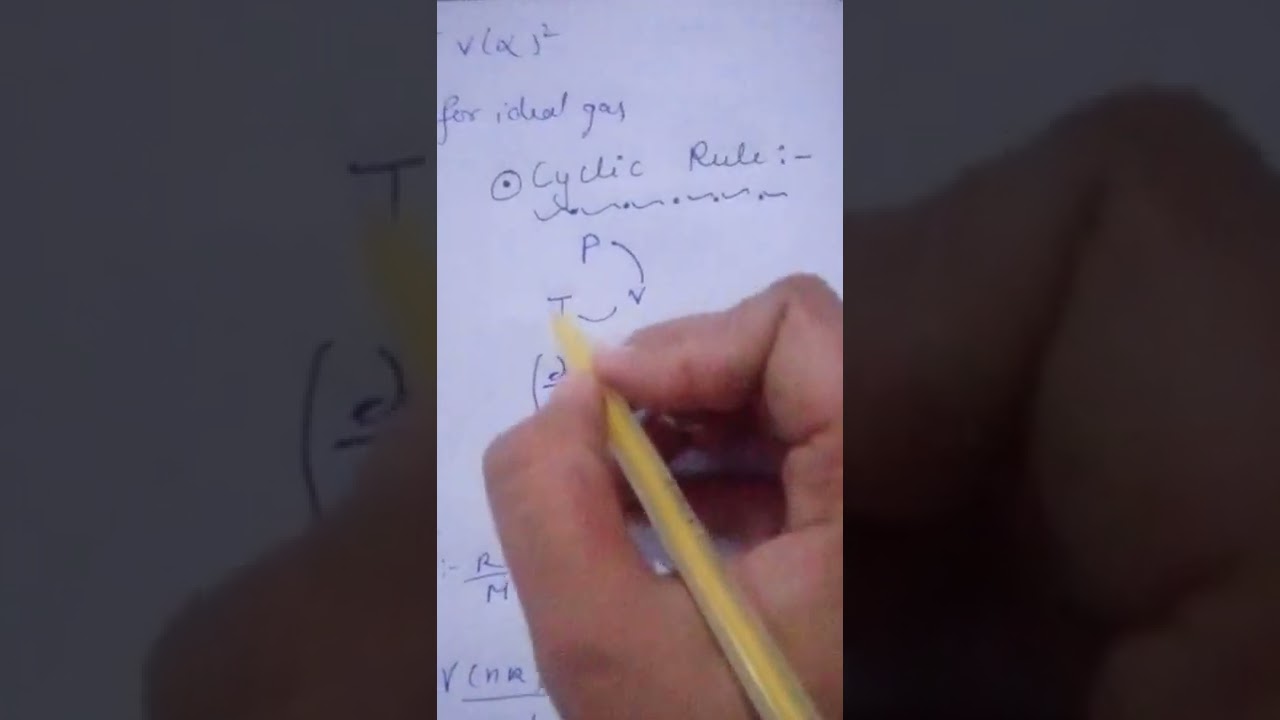 V(α)²
for ideal gas
⊙ Cyclic Rule :-
P
T V
(∂
:- R
M
V(nR